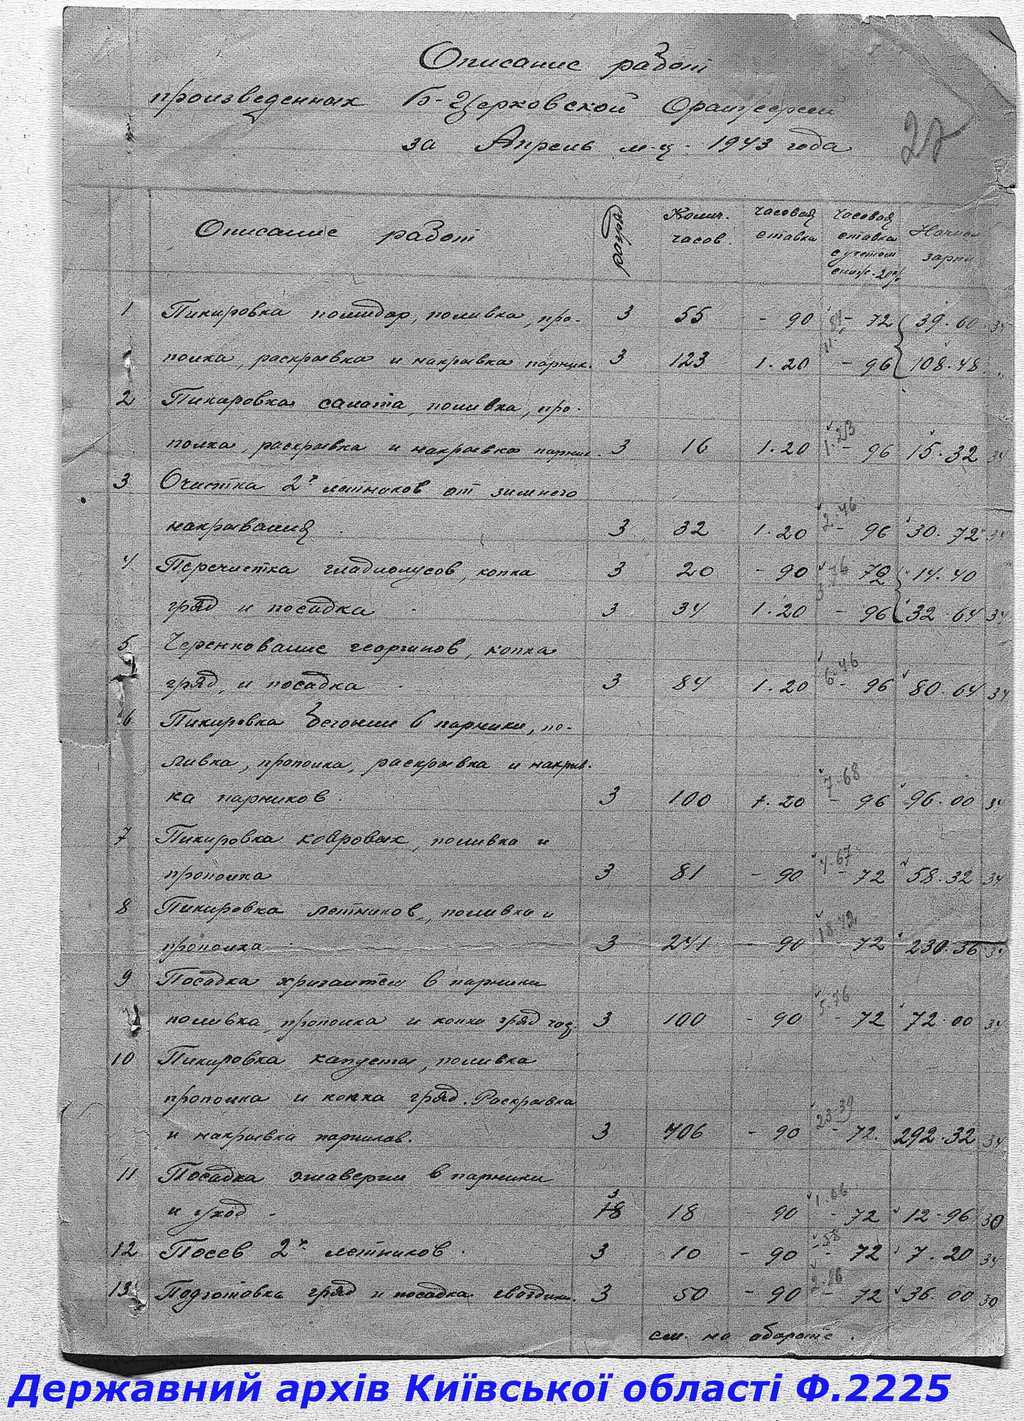 Описание работ
произведенных Б-Церковской Оранжереей
за Апрель м-ц 1943 года
27
Описание работ
Разряд
Колич. часов
часовая ставка
часовая ставка с учетом сниж. 20%
Начисл зарпл
1 Пикировка помидор, поливка, про-
3 55 - 90 - 72 39.60
полка, раскрывка и накрывка парник. 3 123 1.20 - 96 108.48
2 Пикировка салата, поливка, про-
полка, раскрывка и накрывка парник. 3 16 1.20 1.23 - 96 15.32 34
3 Очистка 2х летников от зимнего
накрывания 3 32 1.20 2.46 - 96 30.72 34
4 Перечистка гладиолусов, копка 3 20 - 90 3.76 72 14.40
гряд и посадка 3 34 1.20 - 96 32.64 34
5 Черенкование георгинов, копка
гряд, и посадка 3 84 1.20 6.46 - 96 80.64 34
6 Пикировка бегонии в парники, по-
ливка, прополка, раскрывка и накрыв-
ка парников. 3 100 1.20 7-68 - 96 96.00 34
7 Пикировка ковровых, поливка и
прополка 3 81 - 90 4.67 - 72 58.32 34
8 Пикировка летников, поливка и
прополка 3 241 - 90 18.42 - 72 230.36 34
9 Посадка хризантем в парники
поливка, прополка и копка гряд 3 100 - 90 5.76 - 72 72.00 34
10 Пикировка капусты, поливка
прополка и копка гряд. Раскрывка
и накрывка парников. 3 406 - 90 23-39 - 72. 292.32 34
11 Посадка эшаверии в парники
и уход - 3 18 18 - 90 1.06 - 72 12-96 30
12 Посев 2х летников. 3 10 - 90 -58 - 72 7.20 34
13 Подготовка гряд и посадка гвоздики. 3 50 - 90 2.86 - 72 36.00 30
см. на обороте.
Державний архів Київської області Ф.2225